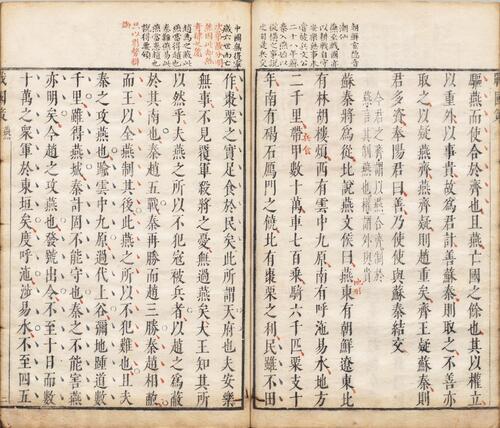 朝鮮室隱音
潮仙
燕至戰國亦
以耕戰自守
安樂無事未
嘗被兵文公
二十八年蘇
秦入燕始以
從橫之事說
之自是兵交
驅燕而使合於齊也且燕亡國之餘也其以權立
以重外以事貴故為君計善蘇秦則取之不善亦
取之以疑燕齊燕齊疑則趙重矣齊王疑蘇秦則
君多資奉陽君曰善乃使使與蘇秦結交
蘇秦將為從北說燕文侯曰燕東有朝鮮遼東北
地形
有林胡樓煩西有雲中九原南有呼沲易水地方
兵食
二千里帶甲數十萬車七百乘騎六千匹粟支十
年南有碣石鴈門之饒北有棗栗之利民雖不田
中國無復寧
歲六世而亡
說得要領
作棗栗之實足食於民矣此所謂天府也夫安樂
無事不見覆軍殺將之憂無過燕矣大王知其所
以然乎夫燕之所以不犯寇被兵者以趙之為蔽
於其南也秦趙五戰秦再勝而趙三勝秦趙相敝
而王以全燕制其後此燕之所以不犯難也且夫
秦之攻燕也踰雲中九原過代上谷彌地踵道數
千里雖得燕城秦計固不能守也秦之不能害燕
亦明矣今趙之攻燕也發號出令不至十日而數
十萬之眾軍於東垣矣度呼沲涉易水不至四五
戰國策 燕